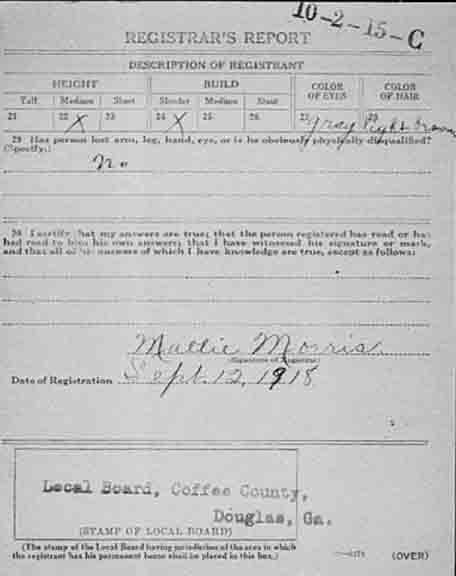 10-2-15-C
REGISTRAR'S REPORT
DESCRIPTION OF REGISTRANT
HEIGHT BUILD COLOR OF EYES COLOR OF HAIR
Tall Medium Short Slender Medium Stout
21 22 X 23 24 X 25 26 27 Gray 28 Light Brown
29 Has person lost arm, leg, hand, eye, or is he obviously physically disqualified?
(Specify.)
No
30 I certify that my answers are true; that the person registered has read or has
had read to him his own answers; that I have witnessed his signature or mark,
and that all of his answers of which I have knowledge are true, except as follows:
Mallie Morris
(Signature of Registrar)
Date of Registration Sept. 12, 1918
Local Board, Coffee County,
Douglas, Ga.
(STAMP OF LOCAL BOARD)
(The stamp of the Local Board having jurisdiction of the area in which
the registrant has his permanent home shall be placed in this box.)
(OVER)